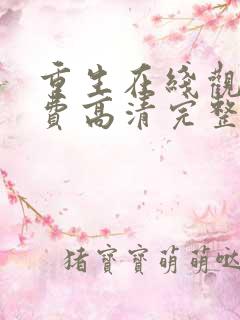 重生在綫觀
費高清完整
猪寶寶萌萌哒